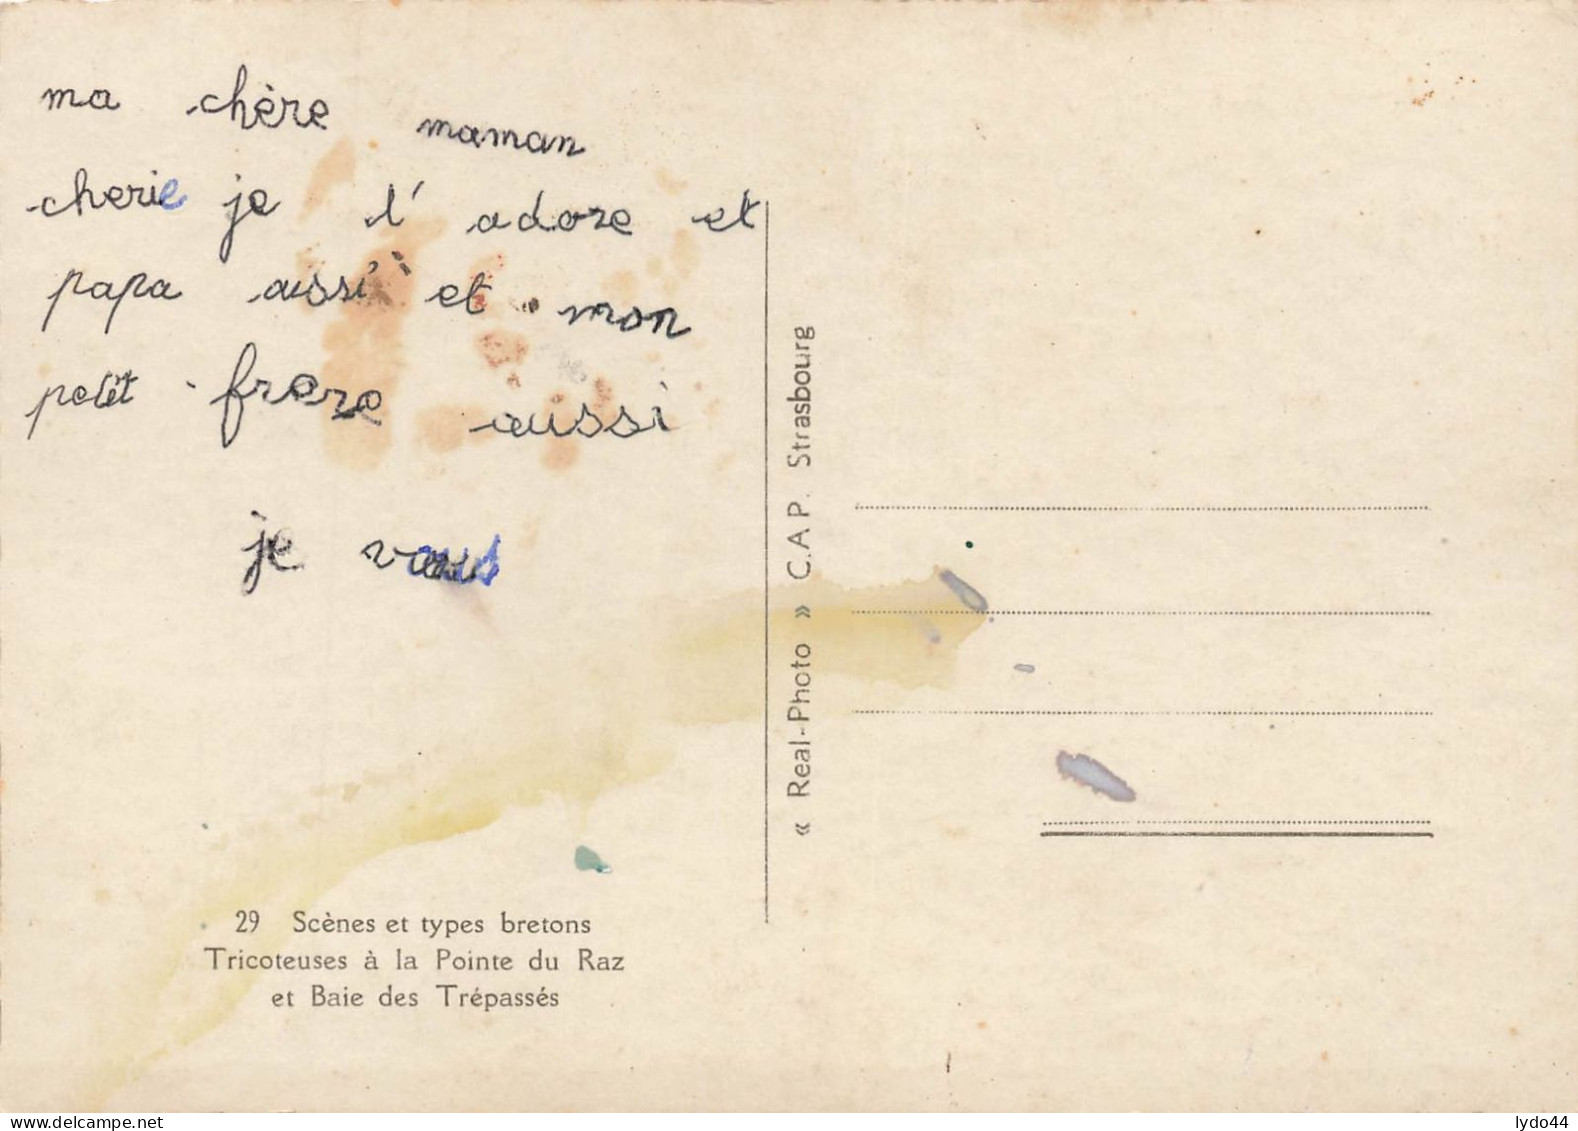 ma chère maman
cherie je l'adore et
papa aussi et mon
petit frere aussi
je vous
29 Scènes et types bretons
Tricoteuses à la Pointe du Raz
et Baie des Trépassés
« Real-Photo » C.A.P. Strasbourg
www.delcampe.net
lydo44